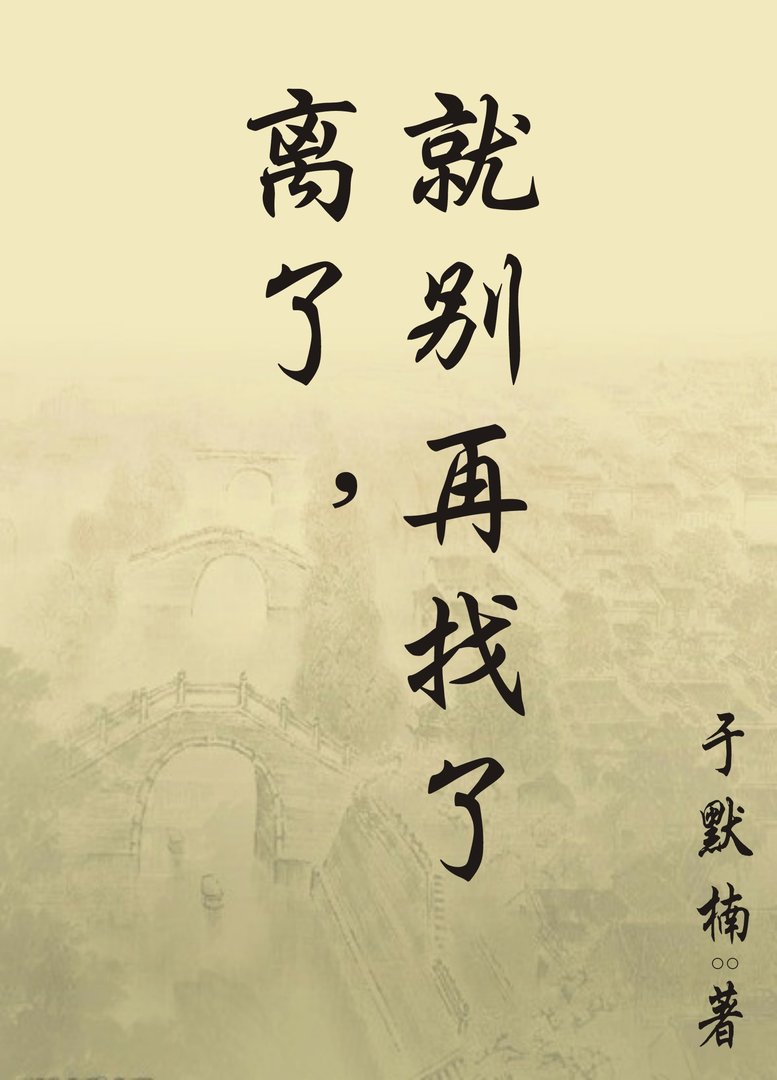 离了，
就别再找了
于默楠○○著